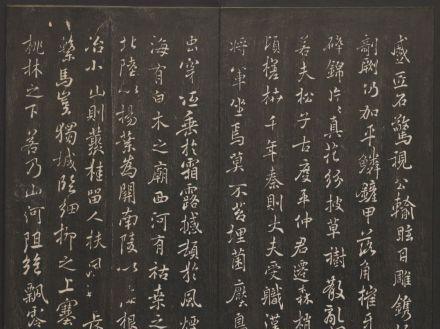 匠石驚視公輸眩目雕鐫
剞劂仍加平鱗鏟甲落角摧
碎錦片片真花紛披草樹散亂
若夫松子古度平仲君遷森梢
頃槎枿千年秦則大夫受職漢
將軍坐焉莫不苔埋菌壓鳥
虫穿低垂於霜露撼頓於風煙
海有白木之廟西河有枯桑之
北陸以楊葉為關南陵以梅根
冶小山則叢桂留人扶風長
繫馬豈獨城臨細柳之上塞
桃林之下若乃山河阻絕飄零